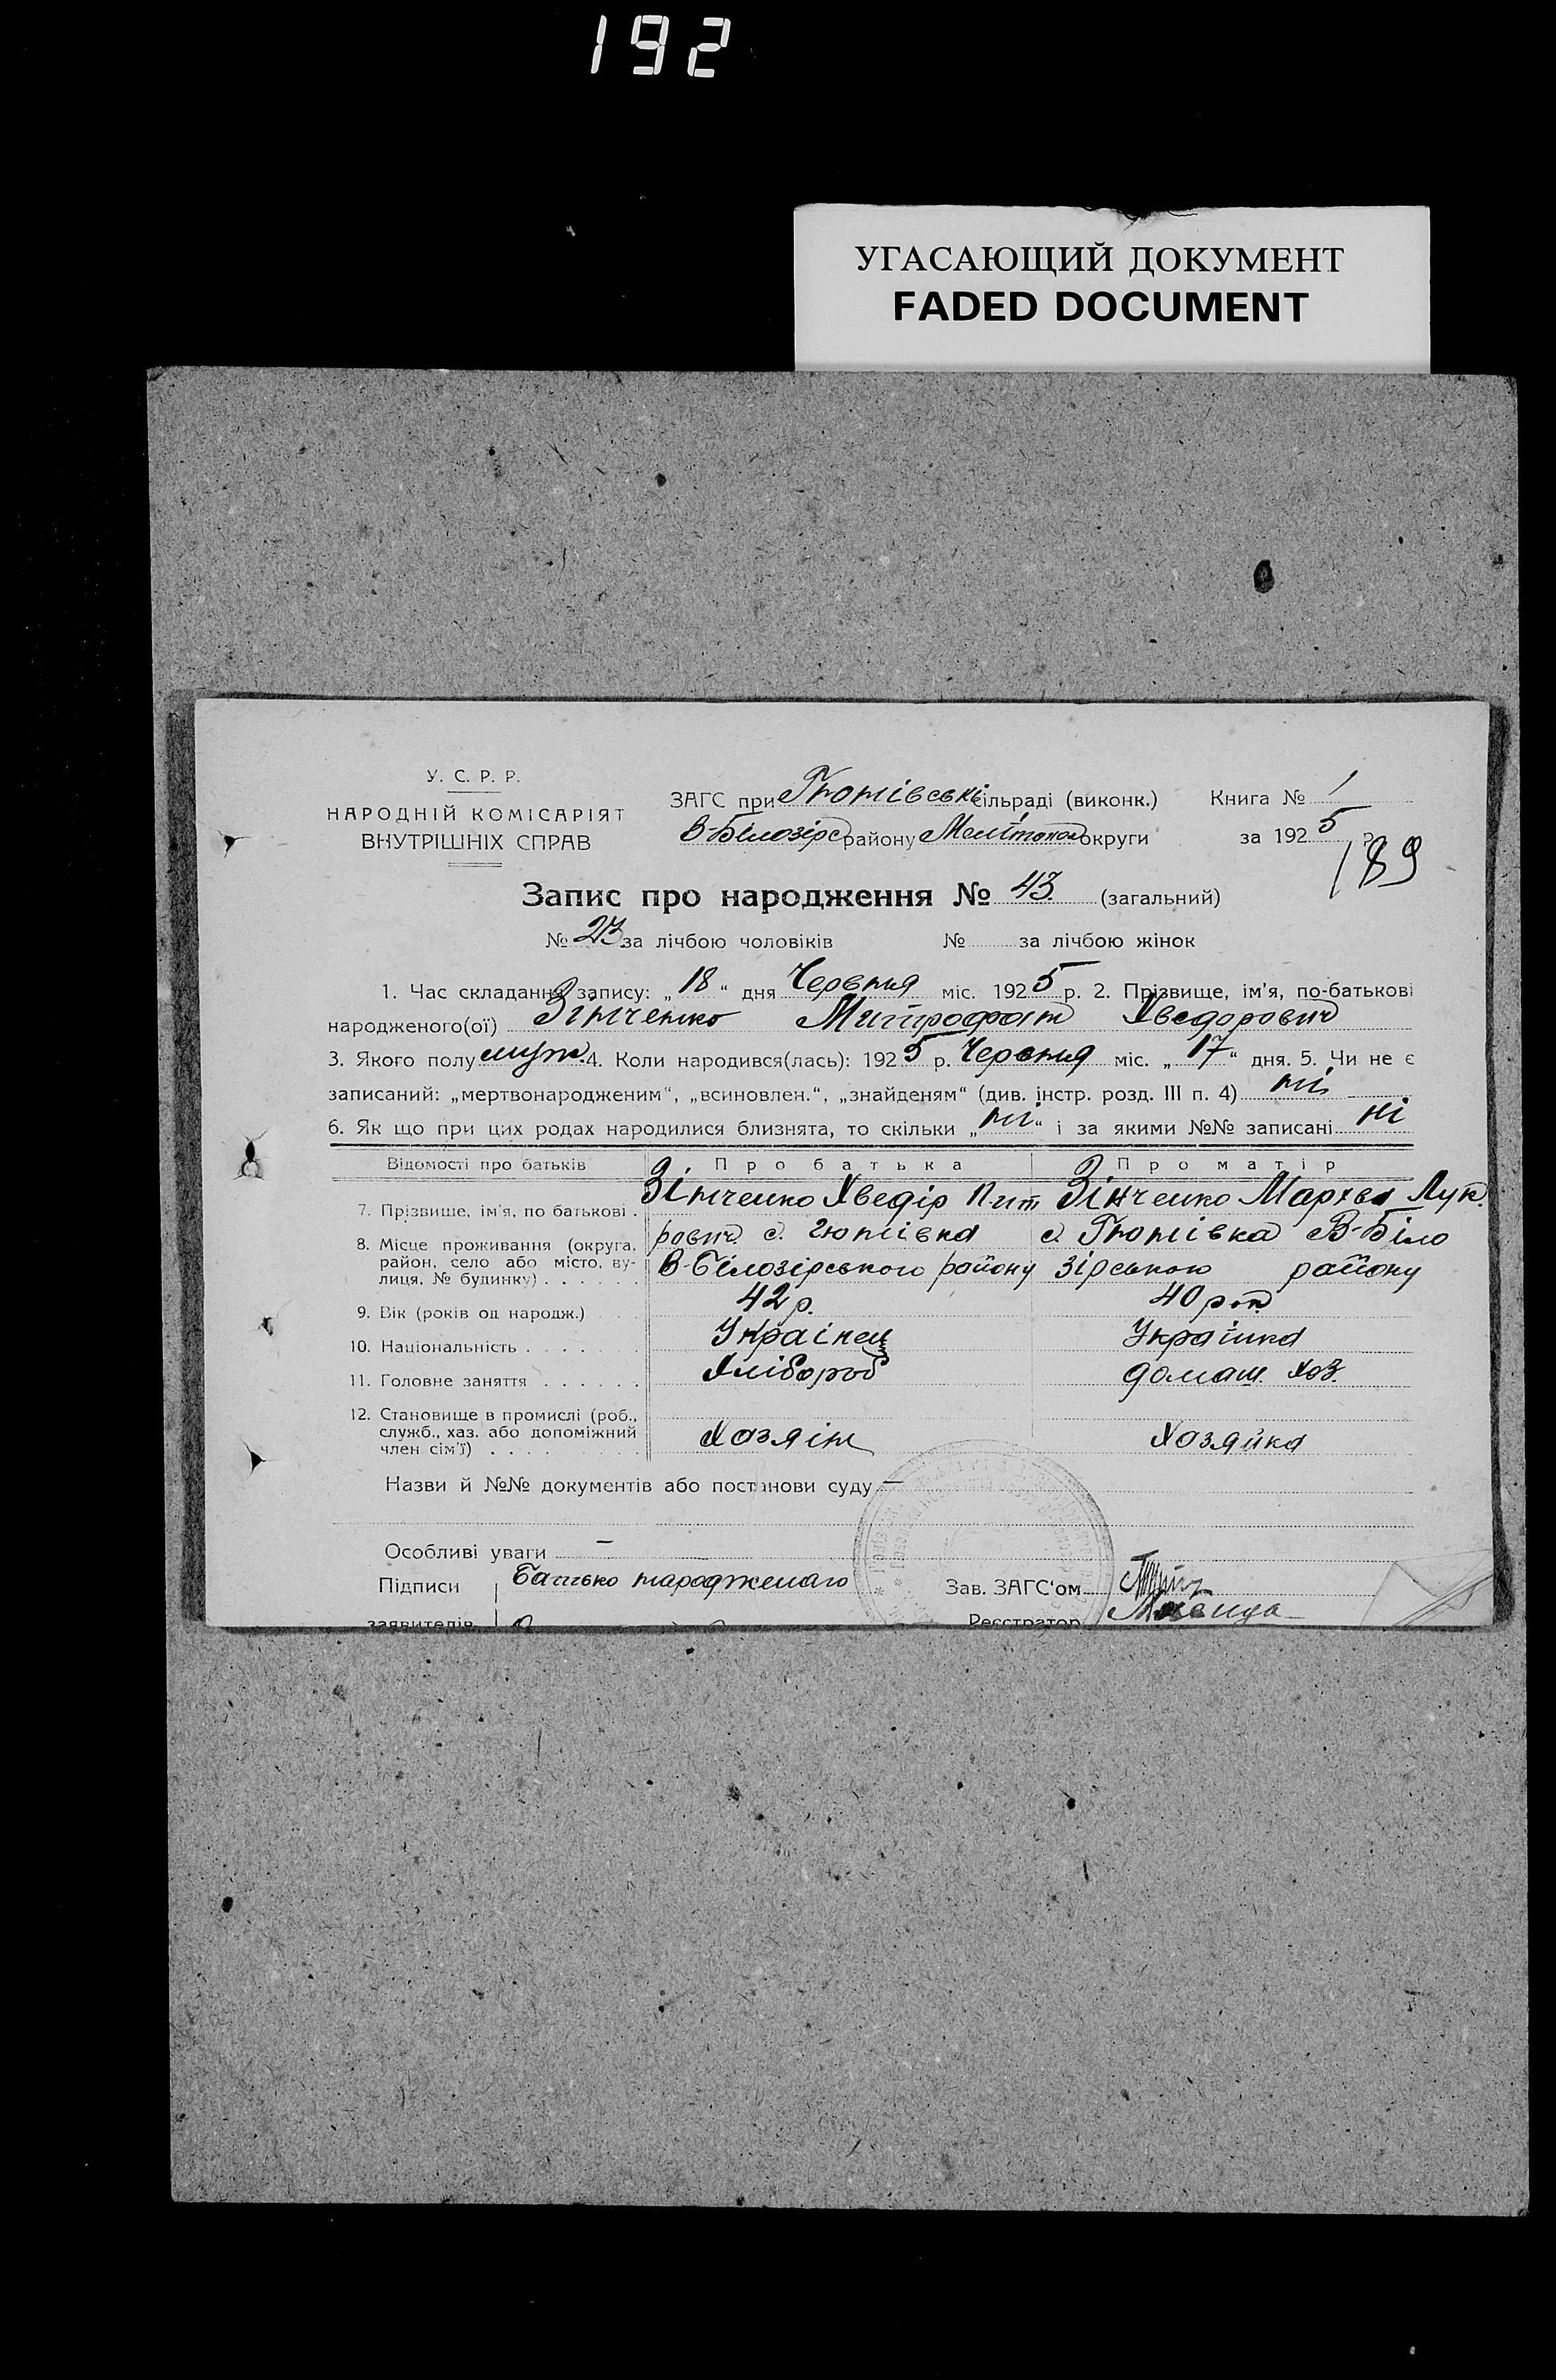 192
УГАСАЮЩИЙ ДОКУМЕНТ
FADED DOCUMENT
У. С. Р. Р.
НАРОДНІЙ КОМІСАРІЯТ
ВНУТРІШНІХ СПРАВ
ЗАГС при Гюнівські сільраді (виконк.) Книга № 1
В-Білозірс району Мелітопол округи за 1925 р
189
Запис про народження № 43. (загальний)
№ 23 за лічбою чоловіків № за лічбою жінок
1. Час складання запису: „18“ дня Червня міс. 1925 р. 2. Прізвище, ім'я, по-батькові
народженого(ої) Зінченко Митрофан Хведорович
3. Якого полу муж. 4. Коли народився(лась): 1925 р. Червня міс. „17“ дня. 5. Чи не є
записаний: „мертвонародженим“, „всиновлен.“, „знайденям“ (див. інстр. розд. III п. 4) ні
6. Як що при цих родах народилися близнята, то скільки „ні“ і за якими №№ записані ні
Відомості про батьків Про батька Про матір
7. Прізвище, ім'я, по батькові . Зінченко Хведір Пит Зінченко Мархва Лук.
8. Місце проживання (округа, район, село або місто, вулиця, № будинку) . . . . . . рович с. Гюнівка с Гюнівка В-Біло
В-Білозірського району зірського району
9. Вік (років од народж.) . . . 42 р. 40 рок
10. Національність . . . . . . Українец Українка
11. Головне заняття . . . . . Хлібороб домаш. хоз.
12. Становище в промислі (роб., служб., хаз. або допоміжний член сім'ї) . . . . Хозяін Хозяйка
Назви й №№ документів або постанови суду —
Особливі уваги —
Підписи Батько народженаго Зав. ЗАГС'ом
заявителів Реєстратор